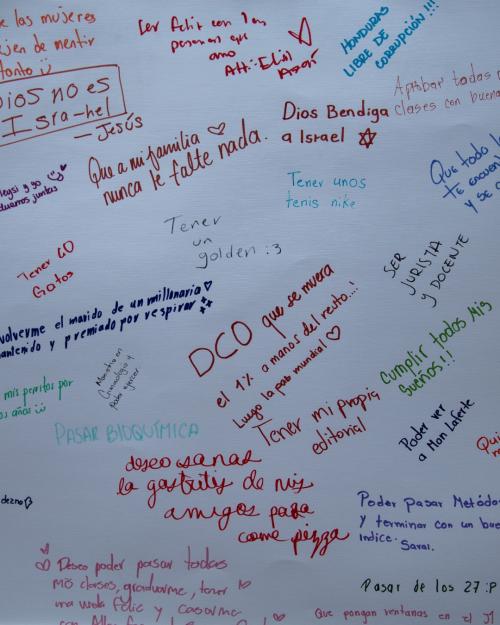 e las mujeres
jen de mentir
tanto ü
Ser feliz con las
personas que
amo
HONDURAS
LIBRE DE
CORRUPCIÓN!!!
Dios no es
Isra-hel
— Jesús
Aprobar todas
clases con buena
Dios Bendiga
a Israel ✡
Que a mi familia ♡
nunca le falte nada.
Que todo
y se
Tener unos
tenis nike
Tener
un
golden :3
Tener 60
Gatos
SER
JURISTA
y DOCENTE
volverme el marido de un millonario ♡
mantenido y premiado por respirar
DCO que se muera
el 1% a manos del resto...!
Luego la paz mundial ♡
Maestría en
Criminología y
mis perritos por
os años ü
Cumplir todos Mis
Sueños!!!
Tener mi propia
editorial
Poder ver
a Mon Laferte
PASAR BIOQUÍMICA
deseo sanar
la gastritis de mis
amigos para
comer pizza
Poder Pasar Métodos
y terminar con un buen
índice.
Sarai.
♡ Deseo poder pasar todas
mis clases, graduarme, tener
una vida feliz y casarme
Pasar de los 27 :P
Que pongan ventanas en el J1